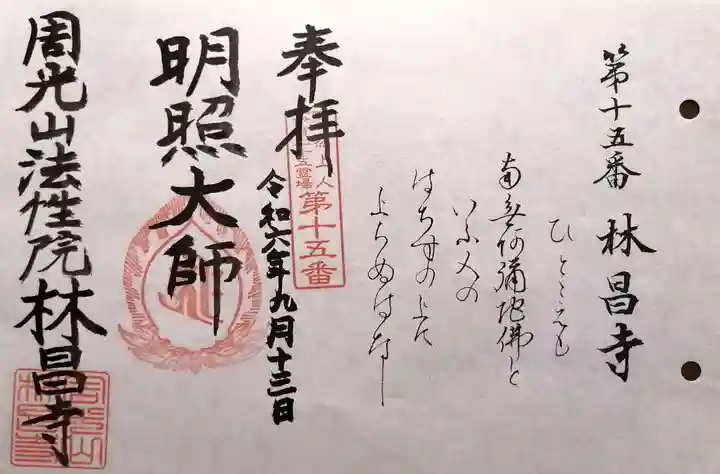 第十五番 林昌寺
ひとこゑも
南無阿彌陀佛と
いふ人の
はちすの上に
上らぬはなし
奉拝
上人
五霊場
第十五番
令和六年九月十三日
明照大師
周光山法性院林昌寺